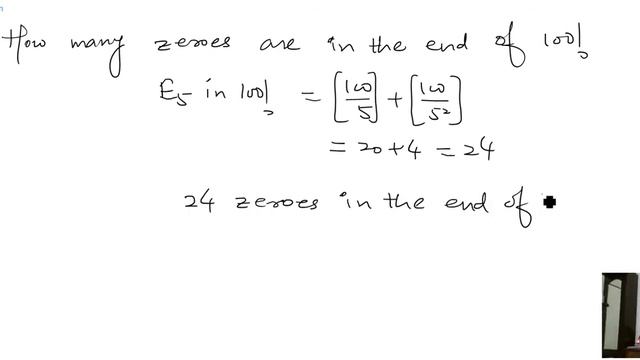 How many zeroes are in the end of 100!
E₅ in 100! = [100/5] + [100/5²]
= 20 + 4 = 24
24 zeroes in the end of